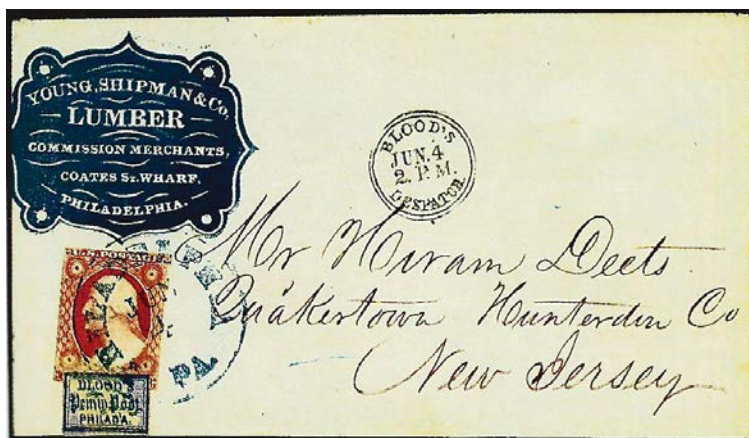 YOUNG, SHIPMAN & Co.
LUMBER
COMMISSION MERCHANTS,
COATES St. WHARF,
PHILADELPHIA.
BLOOD'S
JUN. 4
2. P.M.
DESPATCH
Mr Hiram Deets
Quakertown Hunterdon Co
New Jersey
PA
BLOOD'S
Penny Post
PHILAD'A.